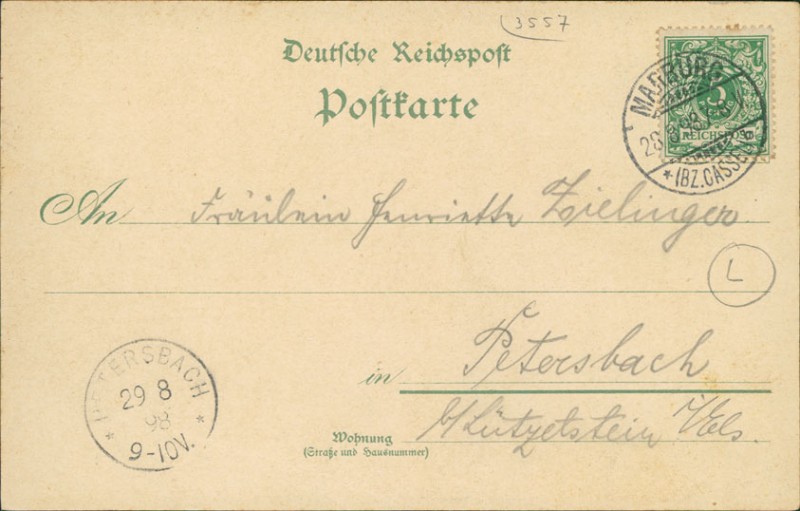 3557
Deutsche Reichspost
Postkarte
MARBURG
28 8 98 7-8
* (BZ. CASSEL)
5
REICHSPOST
An Fräulein Henriette Zielinger
L
in Petersbach
b/ Lützelstein i/Els.
Wohnung
(Straße und Hausnummer)
PETERSBACH
29 8
98
* 9-10V. *